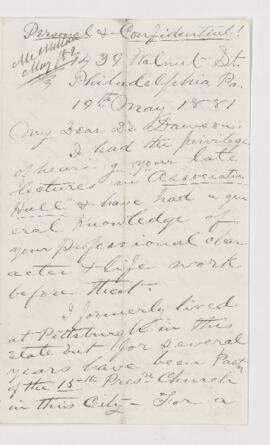 Personal & Confidential!
McMillan
May /82
1439 Walnut St.
Philadelphia Pa.
19th May 1881
My Dear Dr Dawson:
I had the privilege
of hearing your late
lectures in "Association
Hall" & have had a gen
eral knowledge of
your professional char
acter & life work
before that.
I formerly lived
at Pittsburgh in this
state but for several
years have been Pastor
of the 15th Presn Church
in this City. For a